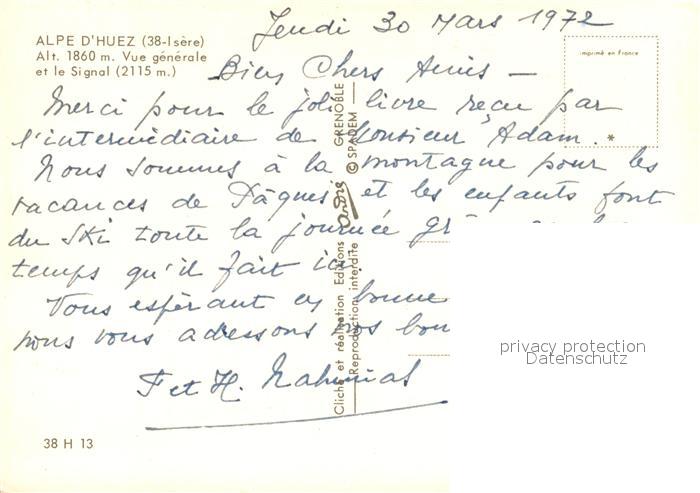 Jeudi 30 Mars 1972
ALPE D'HUEZ (38-Isère)
Alt. 1860 m. Vue générale
et le Signal (2115 m.)
imprimé en France
Bien Chers Amis —
Merci pour le joli livre reçu par
l'intermédiaire de Monsieur Adam.
Nous sommes à la montagne pour les
vacances de Pâques et les enfants font
du ski toute la journée
temps qu'il fait ici.
Vous espérant en bonne
nous vous adressons nos bon
F et H.
Cliché et réalisation Editions André GRENOBLE
Reproduction interdite © SPADEM
privacy protection
Datenschutz
38 H 13